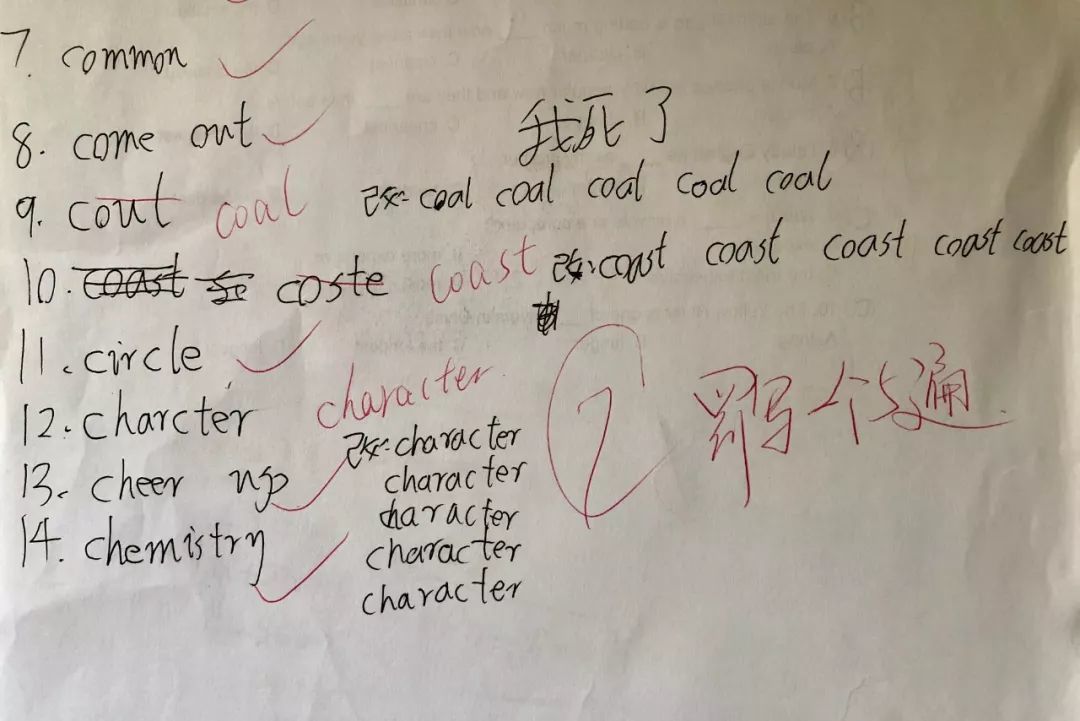 7. common
8. come out
我死了
9. cout coal 改: coal coal coal coal coal
10. coast coste coast 改: coast coast coast coast coast
11. circle
12. charcter character
改: character
13. cheer up
character
haracter
14. chemistry
character
character
罚写一个5遍